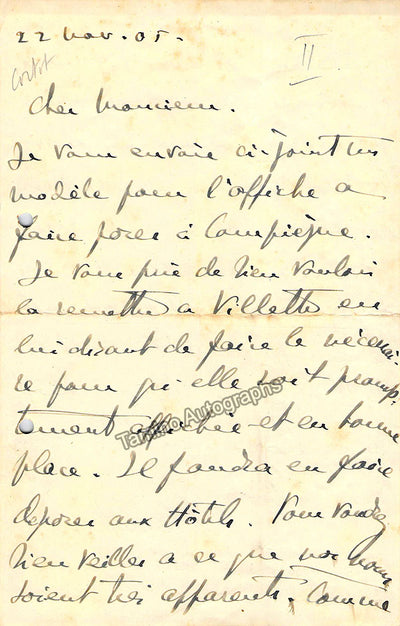 22 nov. 05.
II
Cortot
Cher Monsieur.
Je vous envoie ci-joint un
modèle pour l'affiche a
faire poser à Compiègne.
Je vous prie de bien vouloir
la remettre a Villette en
lui disant de faire le nécessai-
re pour qu'elle soit promp-
tement affichée et en bonne
place. Il faudra en faire
deposer aux Hôtels. Vous voudrez
bien veiller a ce que nos noms
soient très apparents. Comme
Tamino Autographs